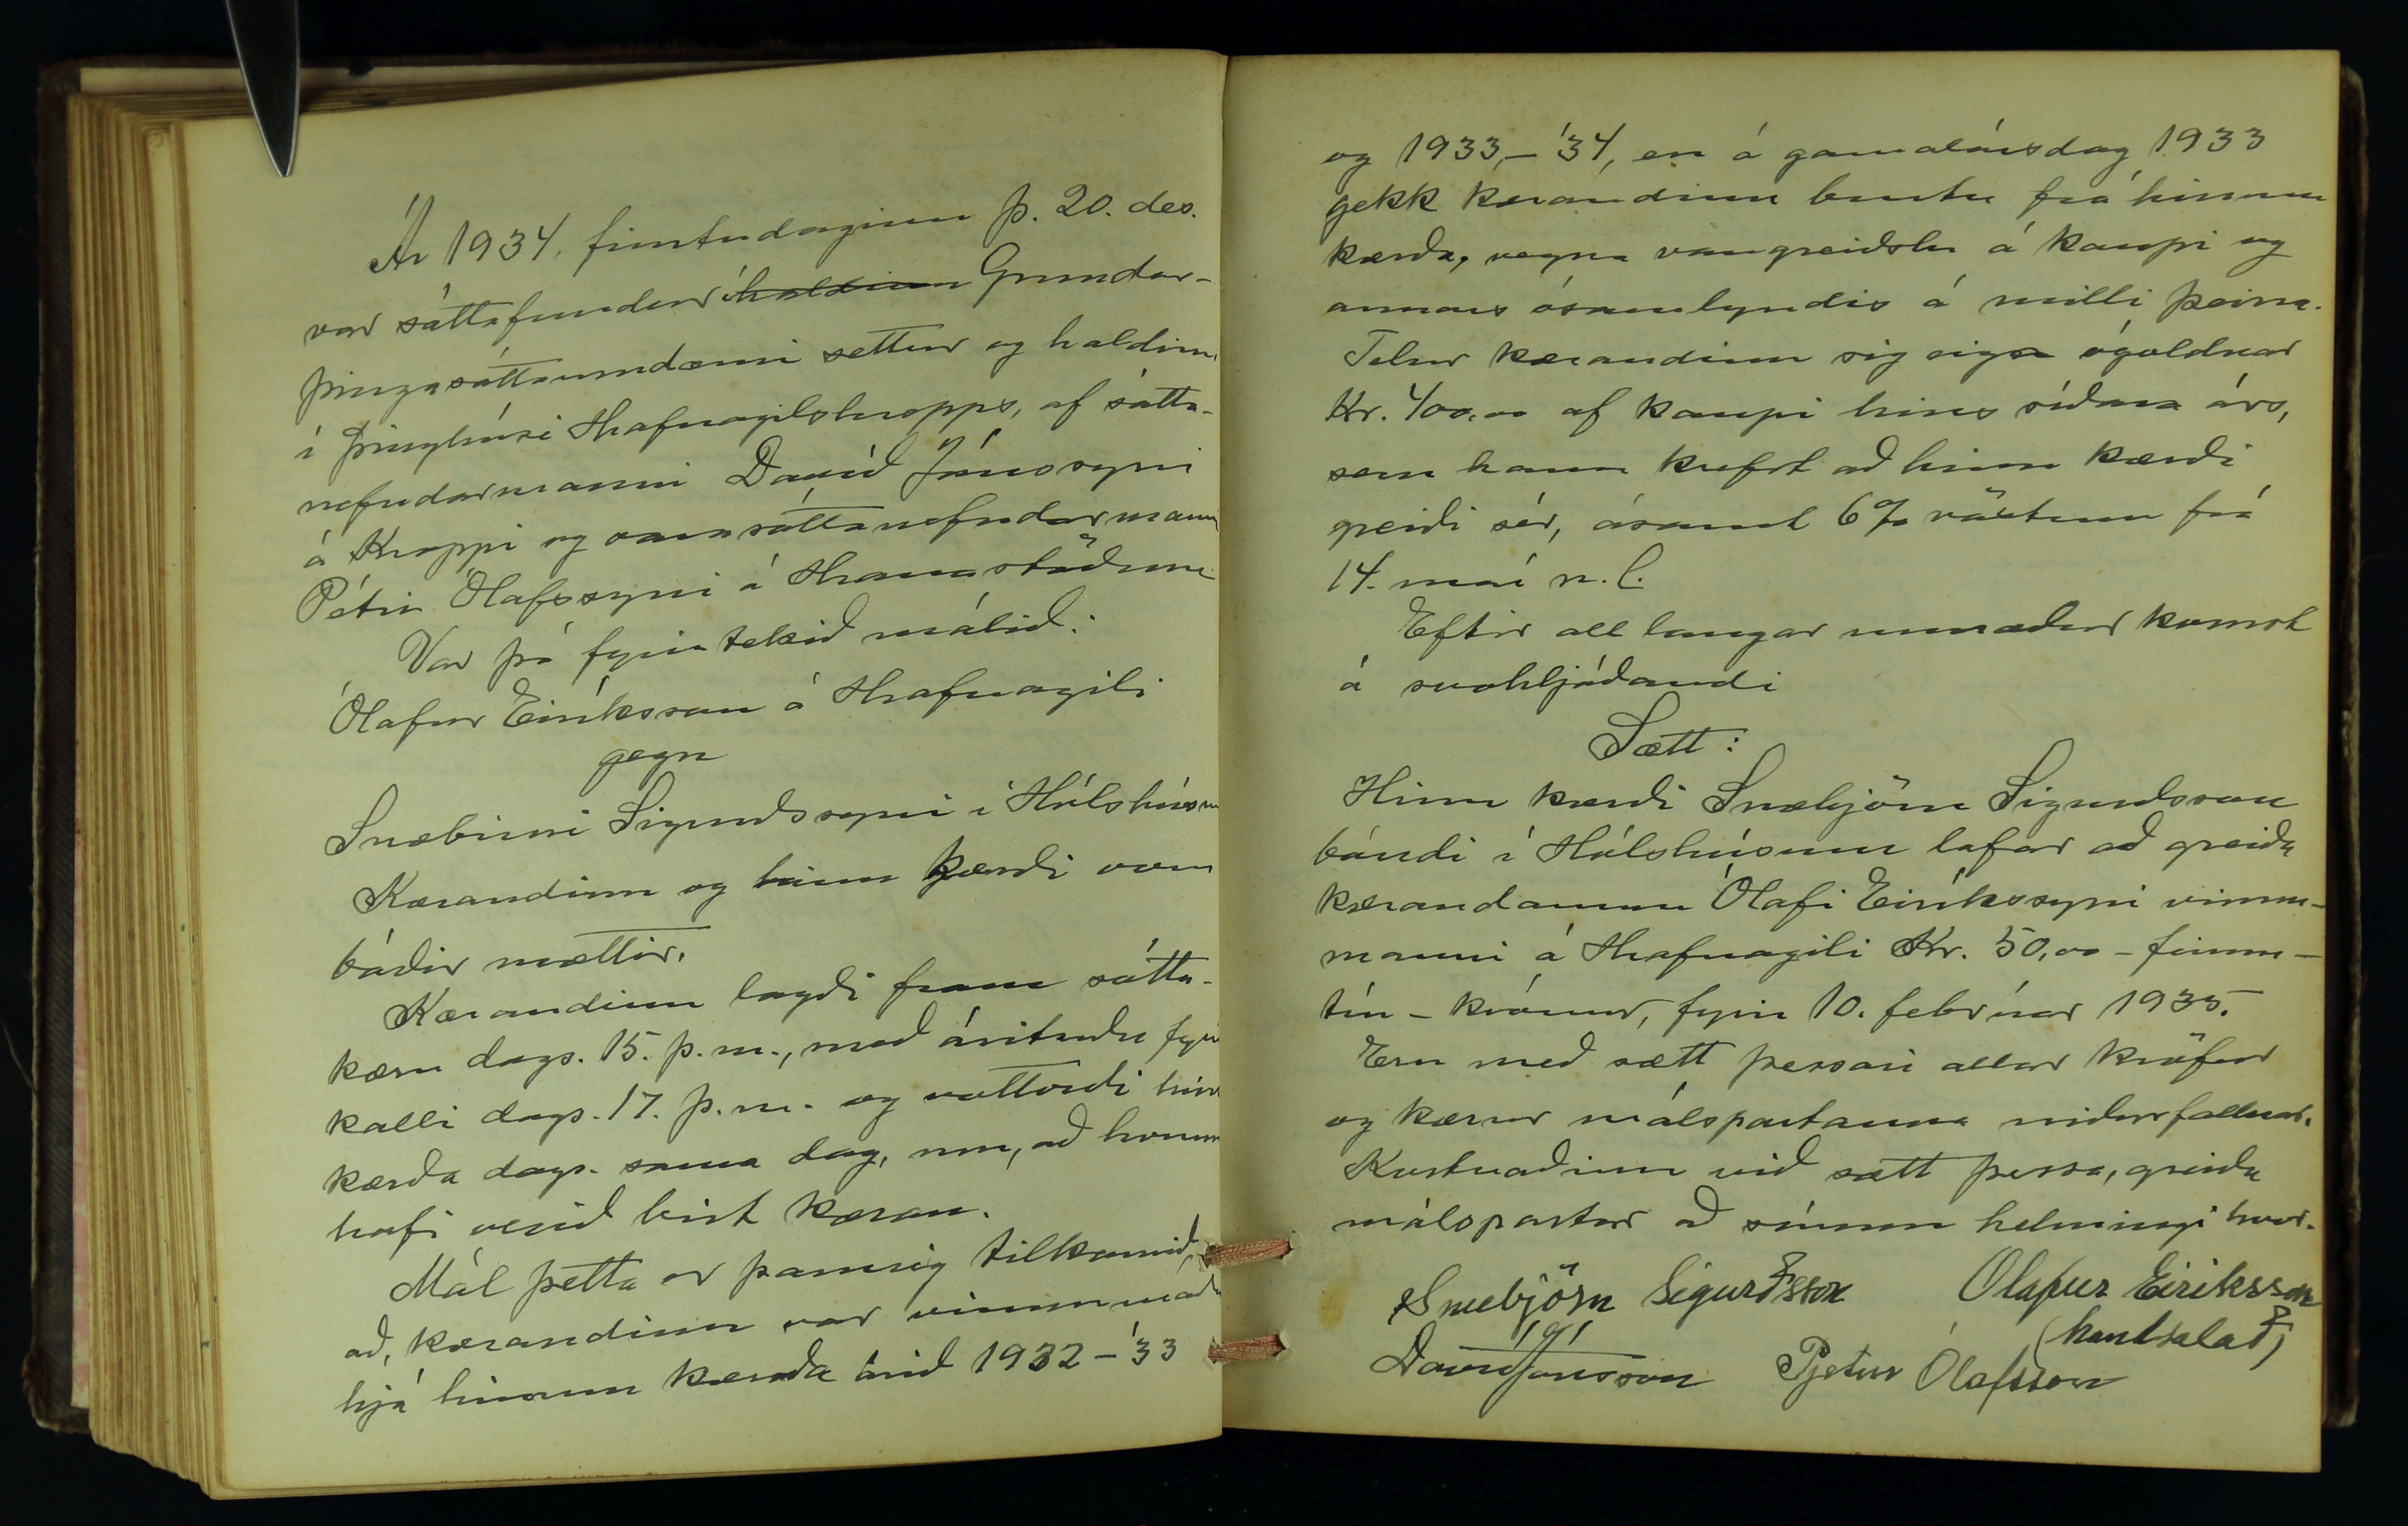 Ár 1934, fimtudaginn þ. 20. des.
var sáttafundur í haldinn Grundar-
þingasáttaumdæmi settur og haldinn
í þinghúsi Hrafnagilshrepps, af sátta-
nefndarmanni Davíð Jónssyni
á Kroppi og varasáttanefndarmann
Pétri Ólafssyni á Hranastöðum
Var þá fyrirtekið málið:
Ólafur Eiríksson á Hrafnagili
gegn
Snæbirni Sigurðssyni í Hólshúsum
Kærandinn og hinn kærði voru
báðir mættir.
Kærandinn lagði fram sátta-
kæru dags. 15. þ.m., með árituðu fyrir
kalli dags. 17. þ.m. og vottorði hins
kærða dags. sama dag, um, að honum
hafi verið birt kæran.
Mál þetta er þannig tilkomið,
að, kærandinn var vinnumaður
hjá hinum kærða árið 1932-'33
og 1933,-'34, en á gamalársdag 1933
gekk kærandinn burtu frá hinum
kærða, vegna vangreiðslu á kaupi og
annars ósamlyndis á milli þeirra.
Telur kærandinn sig eiga ógoldnar
Kr. 400,00 af kaupi hins síðara árs,
sem hann krefst að hinn kærði
greiði sér, ásamt 6% vöxtum frá
14. maí n.l.
Eftir all langar umræður komst
á svohljóðandi
Sætt:
Hinn kærði Snæbjörn Sigurðsson
bóndi í Hólshúsum lofar að greiða
kærandanum Ólafi Eiríkssyni vinnu-
manni á Hrafnagili Kr. 50,00 - fimm-
tíu - krónur, fyrir 10. febrúar 1935.
Eru með sætt þessari allar kröfur
og kærur málspartanna niðurfallnar.
Kostnaðinn við sætt þessa, greiða
málspartar að sínum helmingi hvor.
Snæbjörn Sigurðsson Olafur Eiriksson
(handsalað)
Davíð Jónsson Pjetur Ólafsson